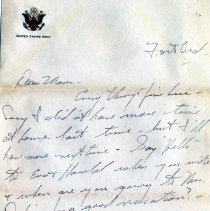 UNITED STATES ARMY
Fort Ord.
Dear Mom.
Every thing's fine here -
Sorry I didn't have more time
at home last time - but I'll
have more next time - Say "Hello"
to when you write
& when are you going to
a good vacation?